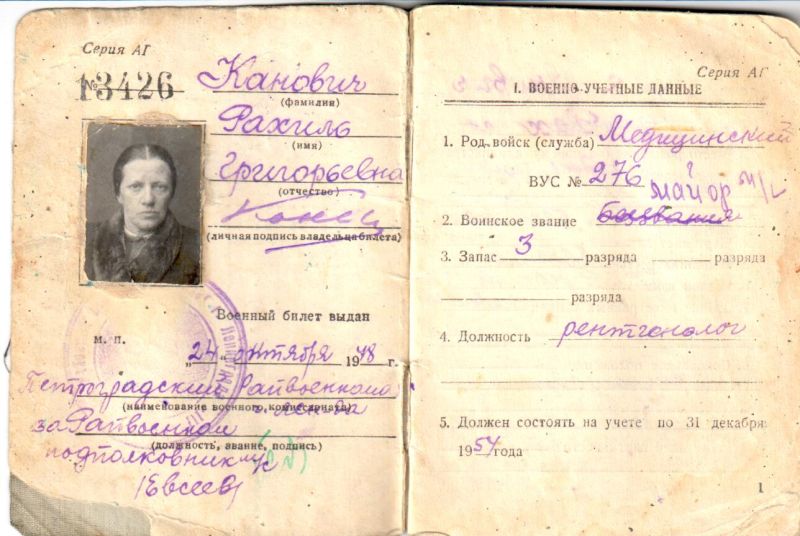 Серия АГ
№ 3426
Канович
(фамилия)
Рахиль
(имя)
Григорьевна
(отчество)
(личная подпись владельца билета)
Военный билет выдан
м. п.
„24" октября 1948 г.
Петроградский Райвоенкомат
(наименование военного комиссариата)
за Райвоенком
(должность, звание, подпись)
подполковник м/с
/Евсеев/
Серия АГ
I. ВОЕННО-УЧЕТНЫЕ ДАННЫЕ
1. Род войск (служба) Медицинский
ВУС № 276
майор м/с
2. Воинское звание без звания
3. Запас 3 разряда разряда
разряда
4. Должность рентгенолог
5. Должен состоять на учете по 31 декабря
1954 года
1